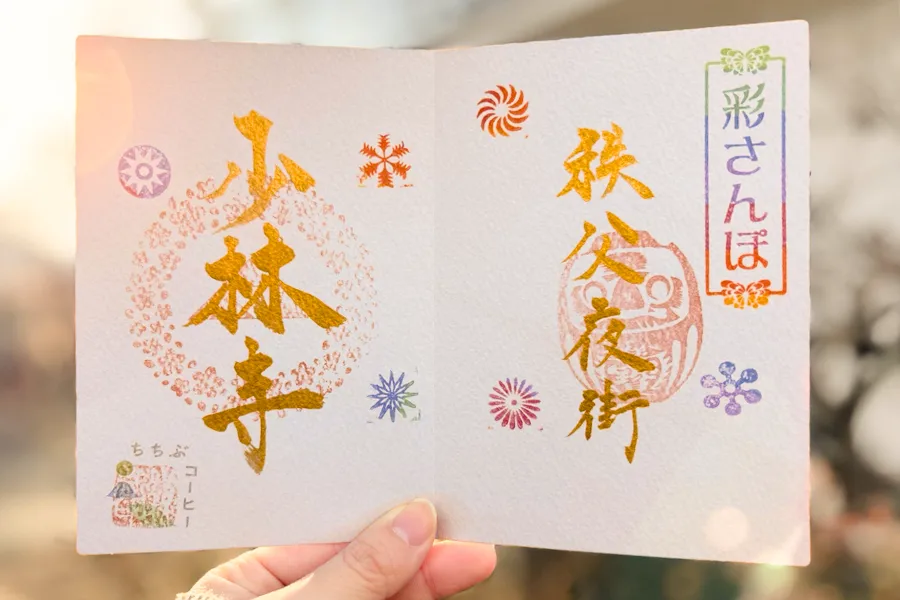 彩さんぽ
秩父夜街
少林寺
ちちぶ
コーヒー